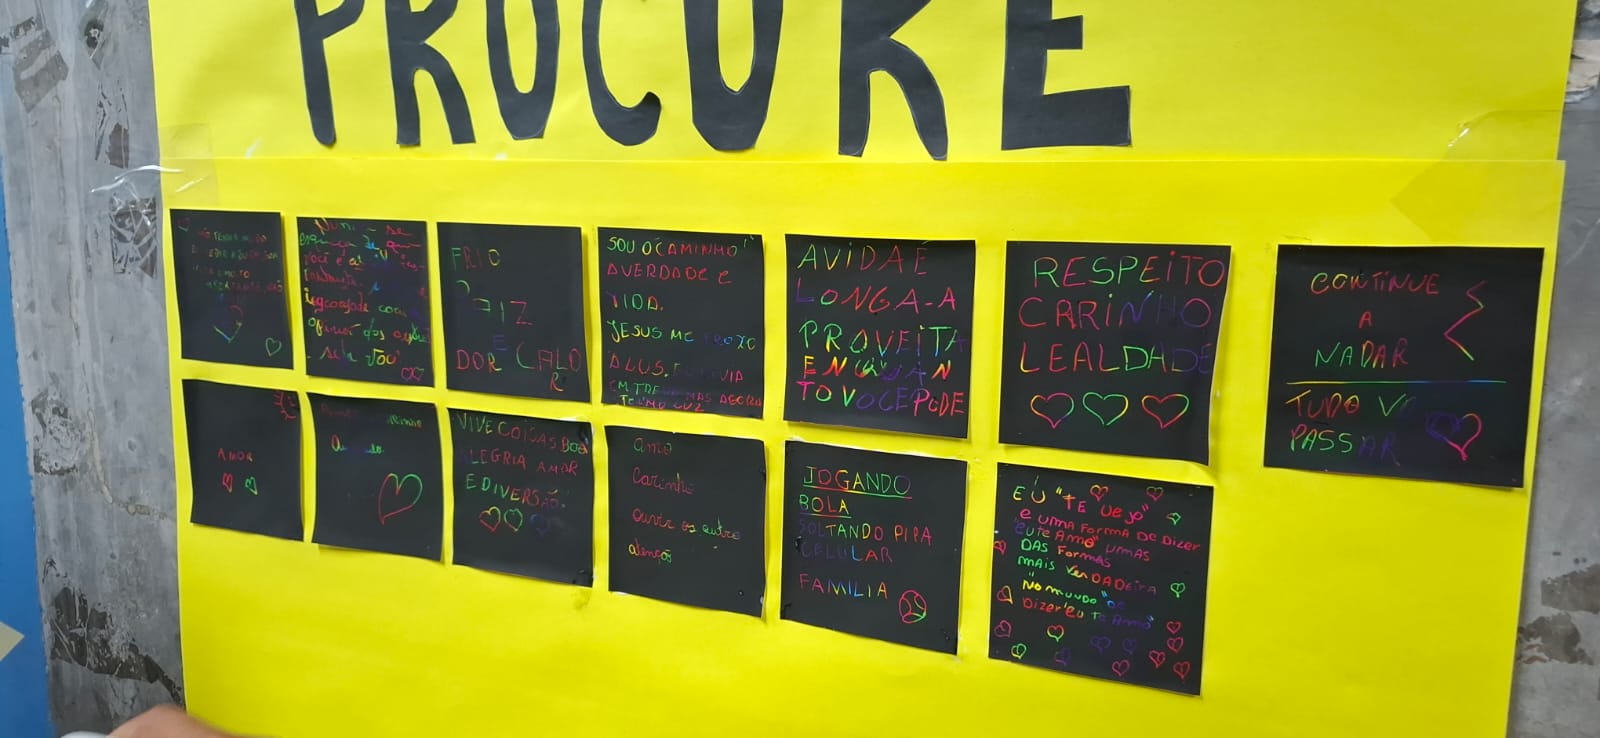 PROCURE
NÃO TENHA MEDO
Nunca se
esqueça de que
você é
FRIO
FIZ
E CALO
DOR
R
SOU O CAMINHO!
AVERDADE E
VIDA.
JESUS ME
A LUS. EU VIVIA
EM TREVAS MAS AGORA
TENHO LUZ
AVIDAÉ
LONGA-A
PROVEITA
ENQUAN
TOVOCEPODE
RESPEITO
CARINHO
LEALDADE
CONTINUE
A
NADAR
TUDO
PASSAR
AMOR
VIVE COISAS BOA
ALEGRIA AMOR
E DIVERSÃO!
amo
Carinho
ouvir os outro
atenção
JOGANDO
BOLA
SOLTANDO PIPA
CELULAR
FAMILIA
EU "TE VeJo"
e UMA FORMA De DiZer
"eu te Amo" UMAS
DAS FormAS
mAiS VerDADeirA
"No munDo" De
Dizer "eu Te Amo"